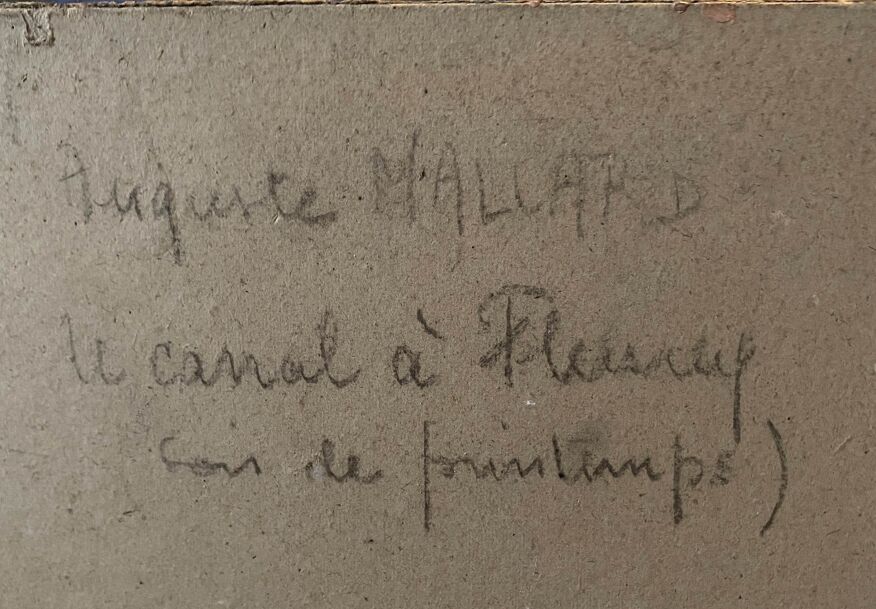 Auguste MALLARD
le canal à Fleurey
soir de printemps)